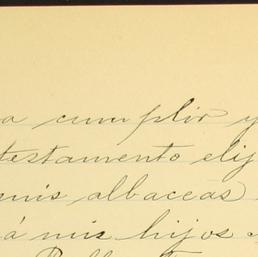 a cumplir y
testamento elij
mis albaceas
á mis hijos